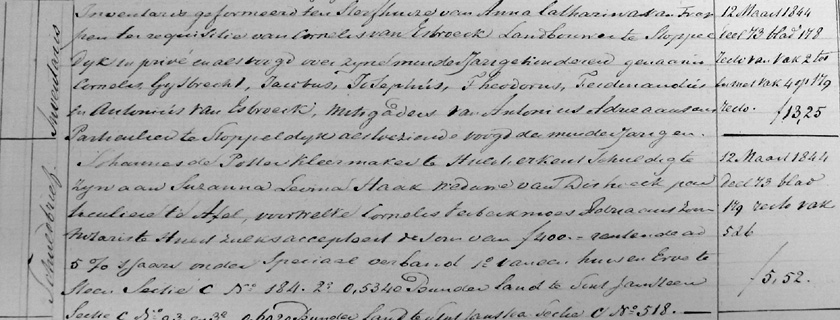 Inventaris
Inventaris geformeerd ten Sterfhuize van Anna Catharina van Frae
pen ter requisitie van Cornelis van Esbroeck Landbouwer te Stoppel
Dijk in privé en als voogd over zyne minderjarige kinderen genaamd
Cornelis Gysbrecht, Jacobus, Josephus, Theodorus, Ferdinandus
en Antonius van Esbroeck, mitsgaders van Antonius Adriaansens
Particulier te Stoppeldyk als toeziende voogd der minderjarigen.
12 Maart 1844
deel 73 blad 178
recto van vak 2 tot
en met vak 4 op 179
recto.
ƒ13,25
Schuldbrief
Johannes de Potter Kleermaker te Hulst erkent Schuldig te
Zyn aan Suzanna Levina Haak weduwe van Dishoeck par
ticuliere te Axel, voor welke Cornelis
Notaris te Hulst zulks accepteert de som van ƒ400.- rentende ad
5 % 's jaars onder Speciaal verband 1e van een huis en Erve te
Sectie C No 184. 2o 0,5340 Bunder land te Sint Jansteen
Sectie C No 93 en 3o Bunder land te Sint Jansteen Sectie C No 518.
12 Maart 1844
deel 73 blad
179 recto vak
5 & 6
ƒ5,52.